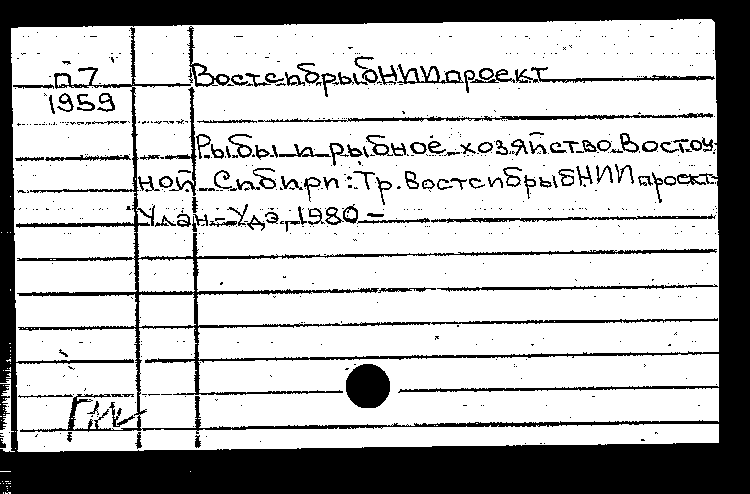 п7 ВостсибрыбНИИпроект
1959
Рыбы и рыбное хозяйство Восточ-
ной Сибири: Тр. ВостсибрыбНИИпроект.
Улан-Удэ, 1980 –